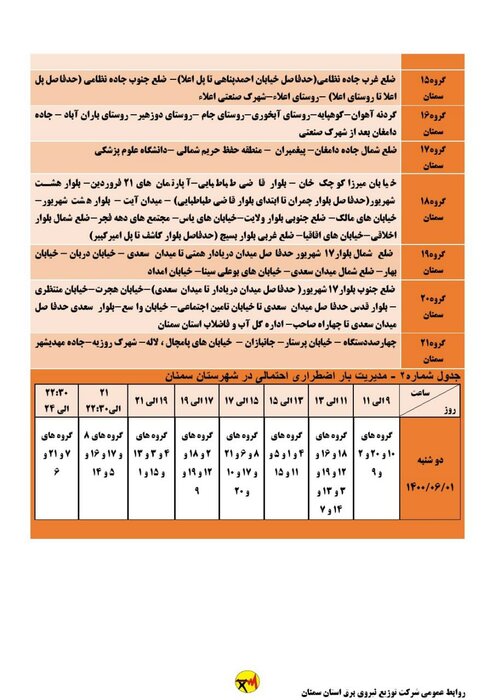 گروه۱۵
سمنان
ضلع غرب جاده نظامی(حدفاصل خیابان احمدپناهی تا پل اعلا)– ضلع جنوب جاده نظامی (حدفاصل پل
اعلا تا روستای اعلا) –روستای اعلاء–شهرک صنعتی اعلاء
گروه۱۶
سمنان
گردنه آهوان–کوهپایه–روستای آبخوری–روستای جام –روستای دوزهیر– روستای باران آباد – جاده
دامغان بعد از شهرک صنعتی
گروه۱۷
سمنان
ضلع شمال جاده دامغان– پیغمبران – منطقه حفظ حریم شمالی –دانشگاه علوم پزشکی
گروه۱۸
سمنان
خیابان میرزا کوچک خان – بلوار قاضی طباطبایی–آپارتمان های ۲۱ فروردین– بلوار هشت
شهریور(حدفاصل بلوار چمران تا ابتدای بلوار قاضی طباطبایی) – میدان آیت – بلوار هشت شهریور–
خیابان های مالک– ضلع جنوبی بلوار ولایت– خیابان های یاس– مجتمع های دهه فجر– ضلع شمال بلوار
اخلاقی–خیابان های اقاقیا– ضلع غربی بلوار بسیج (حدفاصل بلوار کاشف تا پل امیرکبیر)
گروه۱۹
سمنان
ضلع شمال بلوار۱۷ شهریور حدفاصل میدان دریادار همتی تا میدان سعدی – خیابان دربان – خیابان
بهار– ضلع شمال میدان سعدی– خیابان های بوعلی سینا– خیابان امداد
گروه۲۰
سمنان
ضلع جنوب بلوار۱۷شهریور( حدفاصل میدان دریادار تا میدان سعدی)–خیابان هجرت–خیابان منتظری
– بلوار قدس حدفاصل میدان سعدی تا خیابان تامین اجتماعی– خیابان واسع– بلوار سعدی حدفاصل
میدان سعدی تا چهاراه صاحب– اداره کل آب و فاضلاب استان سمنان
گروه۲۱
سمنان
چهارصددستگاه – خیابان پرستار– جانبازان – خیابان های پامچال ، لاله– شهرک روزیه–جاده مهدیشهر
جدول شماره۲ – مدیریت بار اضطراری احتمالی در شهرستان سمنان
ساعت
روز
۹ الی ۱۱
۱۱ الی ۱۳
۱۳ الی ۱۵
۱۵ الی ۱۷
۱۷ الی ۱۹
۱۹ الی ۲۱
۲۱
الی۲۲:۳۰
۲۲:۳۰
الی ۲۴
دو شنبه
۱۴۰۰/۰۶/۰۱
گروه های
۱۰ و ۲۰ و ۲
و ۹
گروه های
۱۸ و ۱۶ و
۱۲ و ۱۹ و
۳ و ۱۳ و
۱۴ و ۷
گروه های
۴ و ۱ و ۵ و
۱۱ و ۱۵
گروه های
۸ و ۶ و ۲۱
و ۱۷ و ۱۰
و ۲۰
گروه های
۲ و ۱۸ و
۱۲ و ۱۹ و
۹
گروه های
۴ و ۳ و ۱۳
و ۱۵ و ۱
گروه های ۸
و ۱۷ و ۱۶ و
۵ و ۱۴
گروه های
۷ و ۲۱ و
۶
روابط عمومی شرکت توزیع نیروی برق استان سمنان